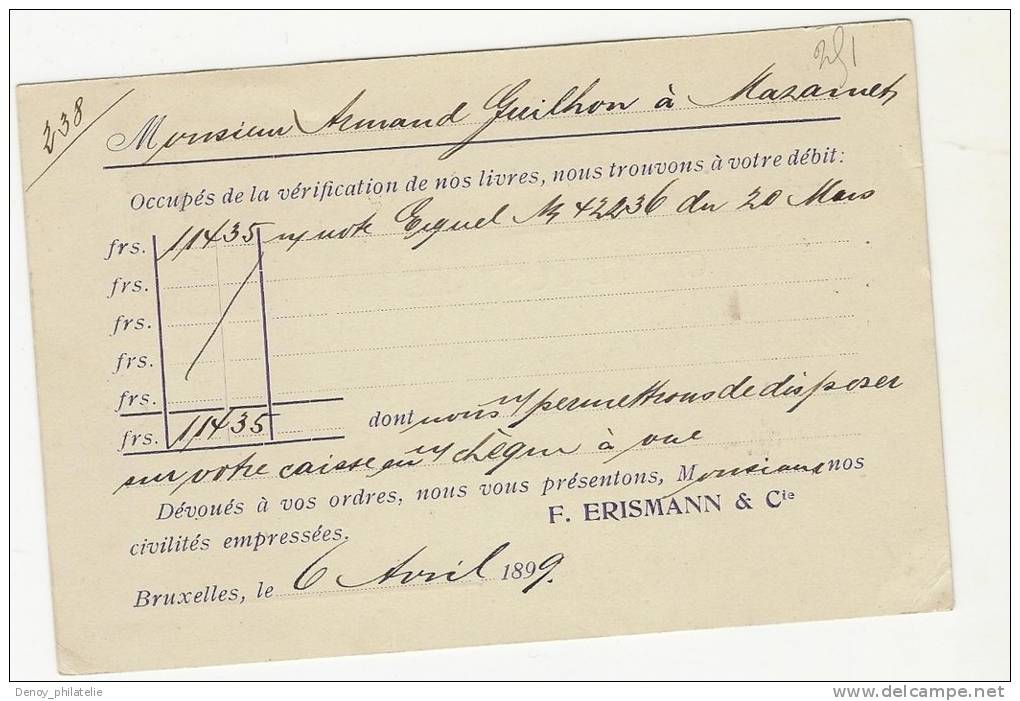 238
251
Monsieur Armand Guilhon à Mazamet
Occupés de la vérification de nos livres, nous trouvons à votre débit:
frs. 114 35 n/ note du 20 Mars
frs.
frs.
frs.
frs.
frs. 114 35 dont nous n/ permettrons de disposer
sur votre caisse en n/ chèque à vue
Dévoués à vos ordres, nous vous présentons, Monsieur, nos
civilités empressées.
F. ERISMANN & Cie
Bruxelles, le 6 Avril 1899.
Denoy_philatelie
www.delcampe.net